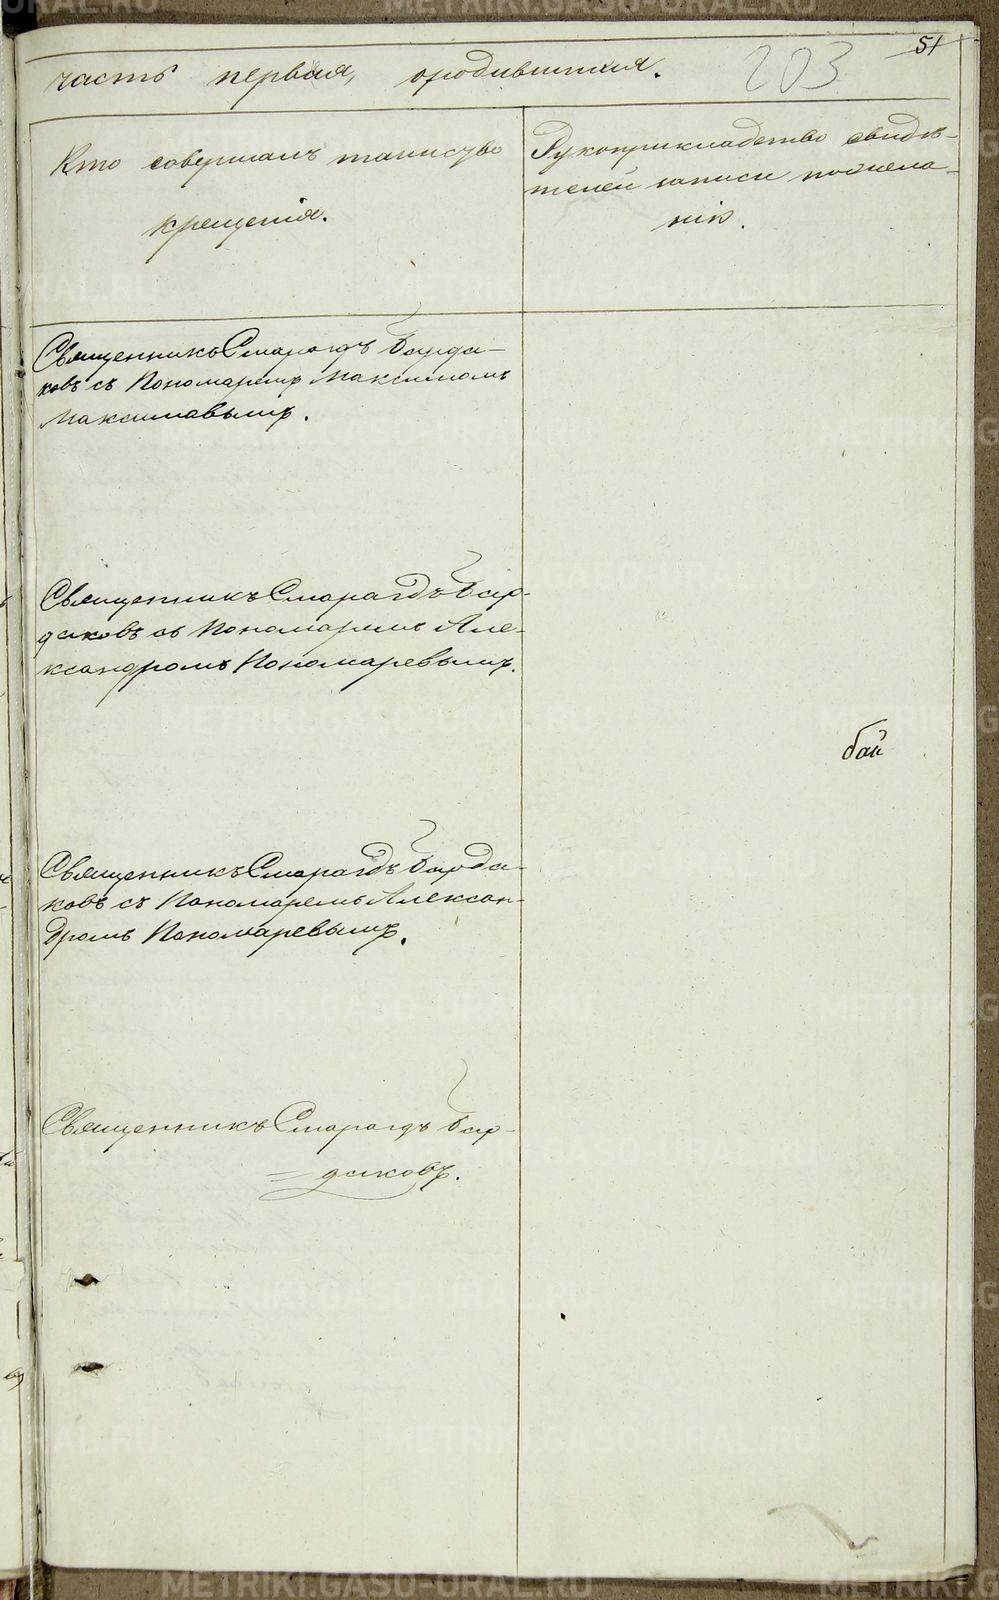 51
203
часть первая, ородившихся.
Кто совершалъ таинство
крещенія.
Рукоприкладство свидѣ-
телей записи пожела-
нію.
Священникъ Смарагдъ Барда-
ковъ съ Пономаремъ Максимомъ
Максимовымъ.
Священникъ Смарагдъ Бар-
даковъ съ Пономаремъ Але-
ксандромъ Пономаревымъ.
бай
Священникъ Смарагдъ Барда-
ковъ съ Пономаремъ Алексан-
дромъ Пономаревымъ.
Священникъ Смарагдъ Бар-
даковъ.
METRIKI.GASO-URAL.RU